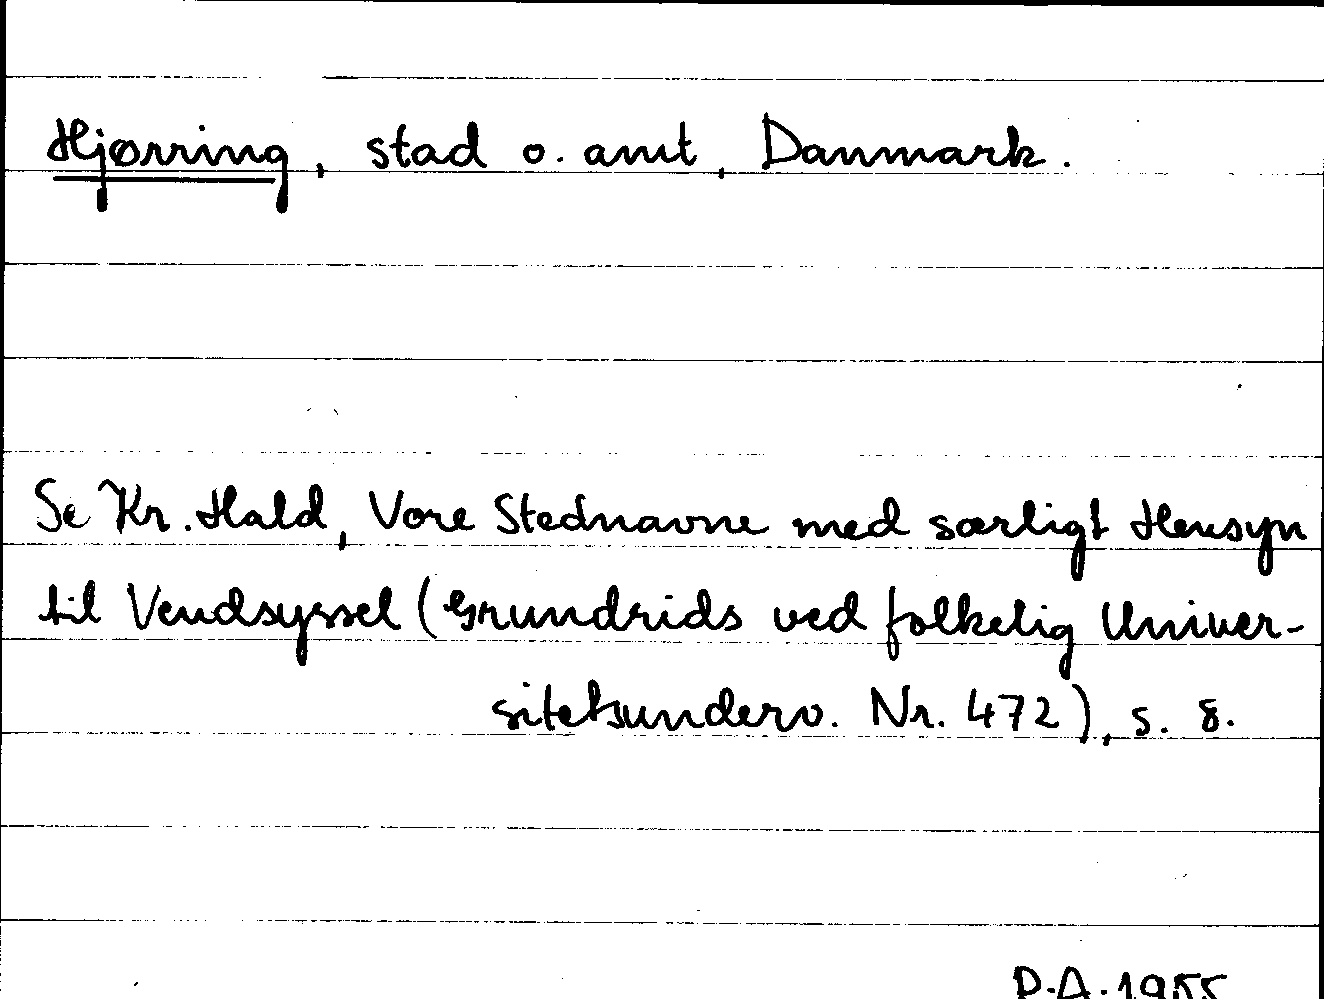 Hjørring, stad o. amt, Danmark.
Se Kr. Hald, Vore Stednavne med særligt Hensyn
til Vendsyssel (Grundrids ved folkelig Univer-
sitetsunderv. Nr. 472), s. 8.
P.A. 1955